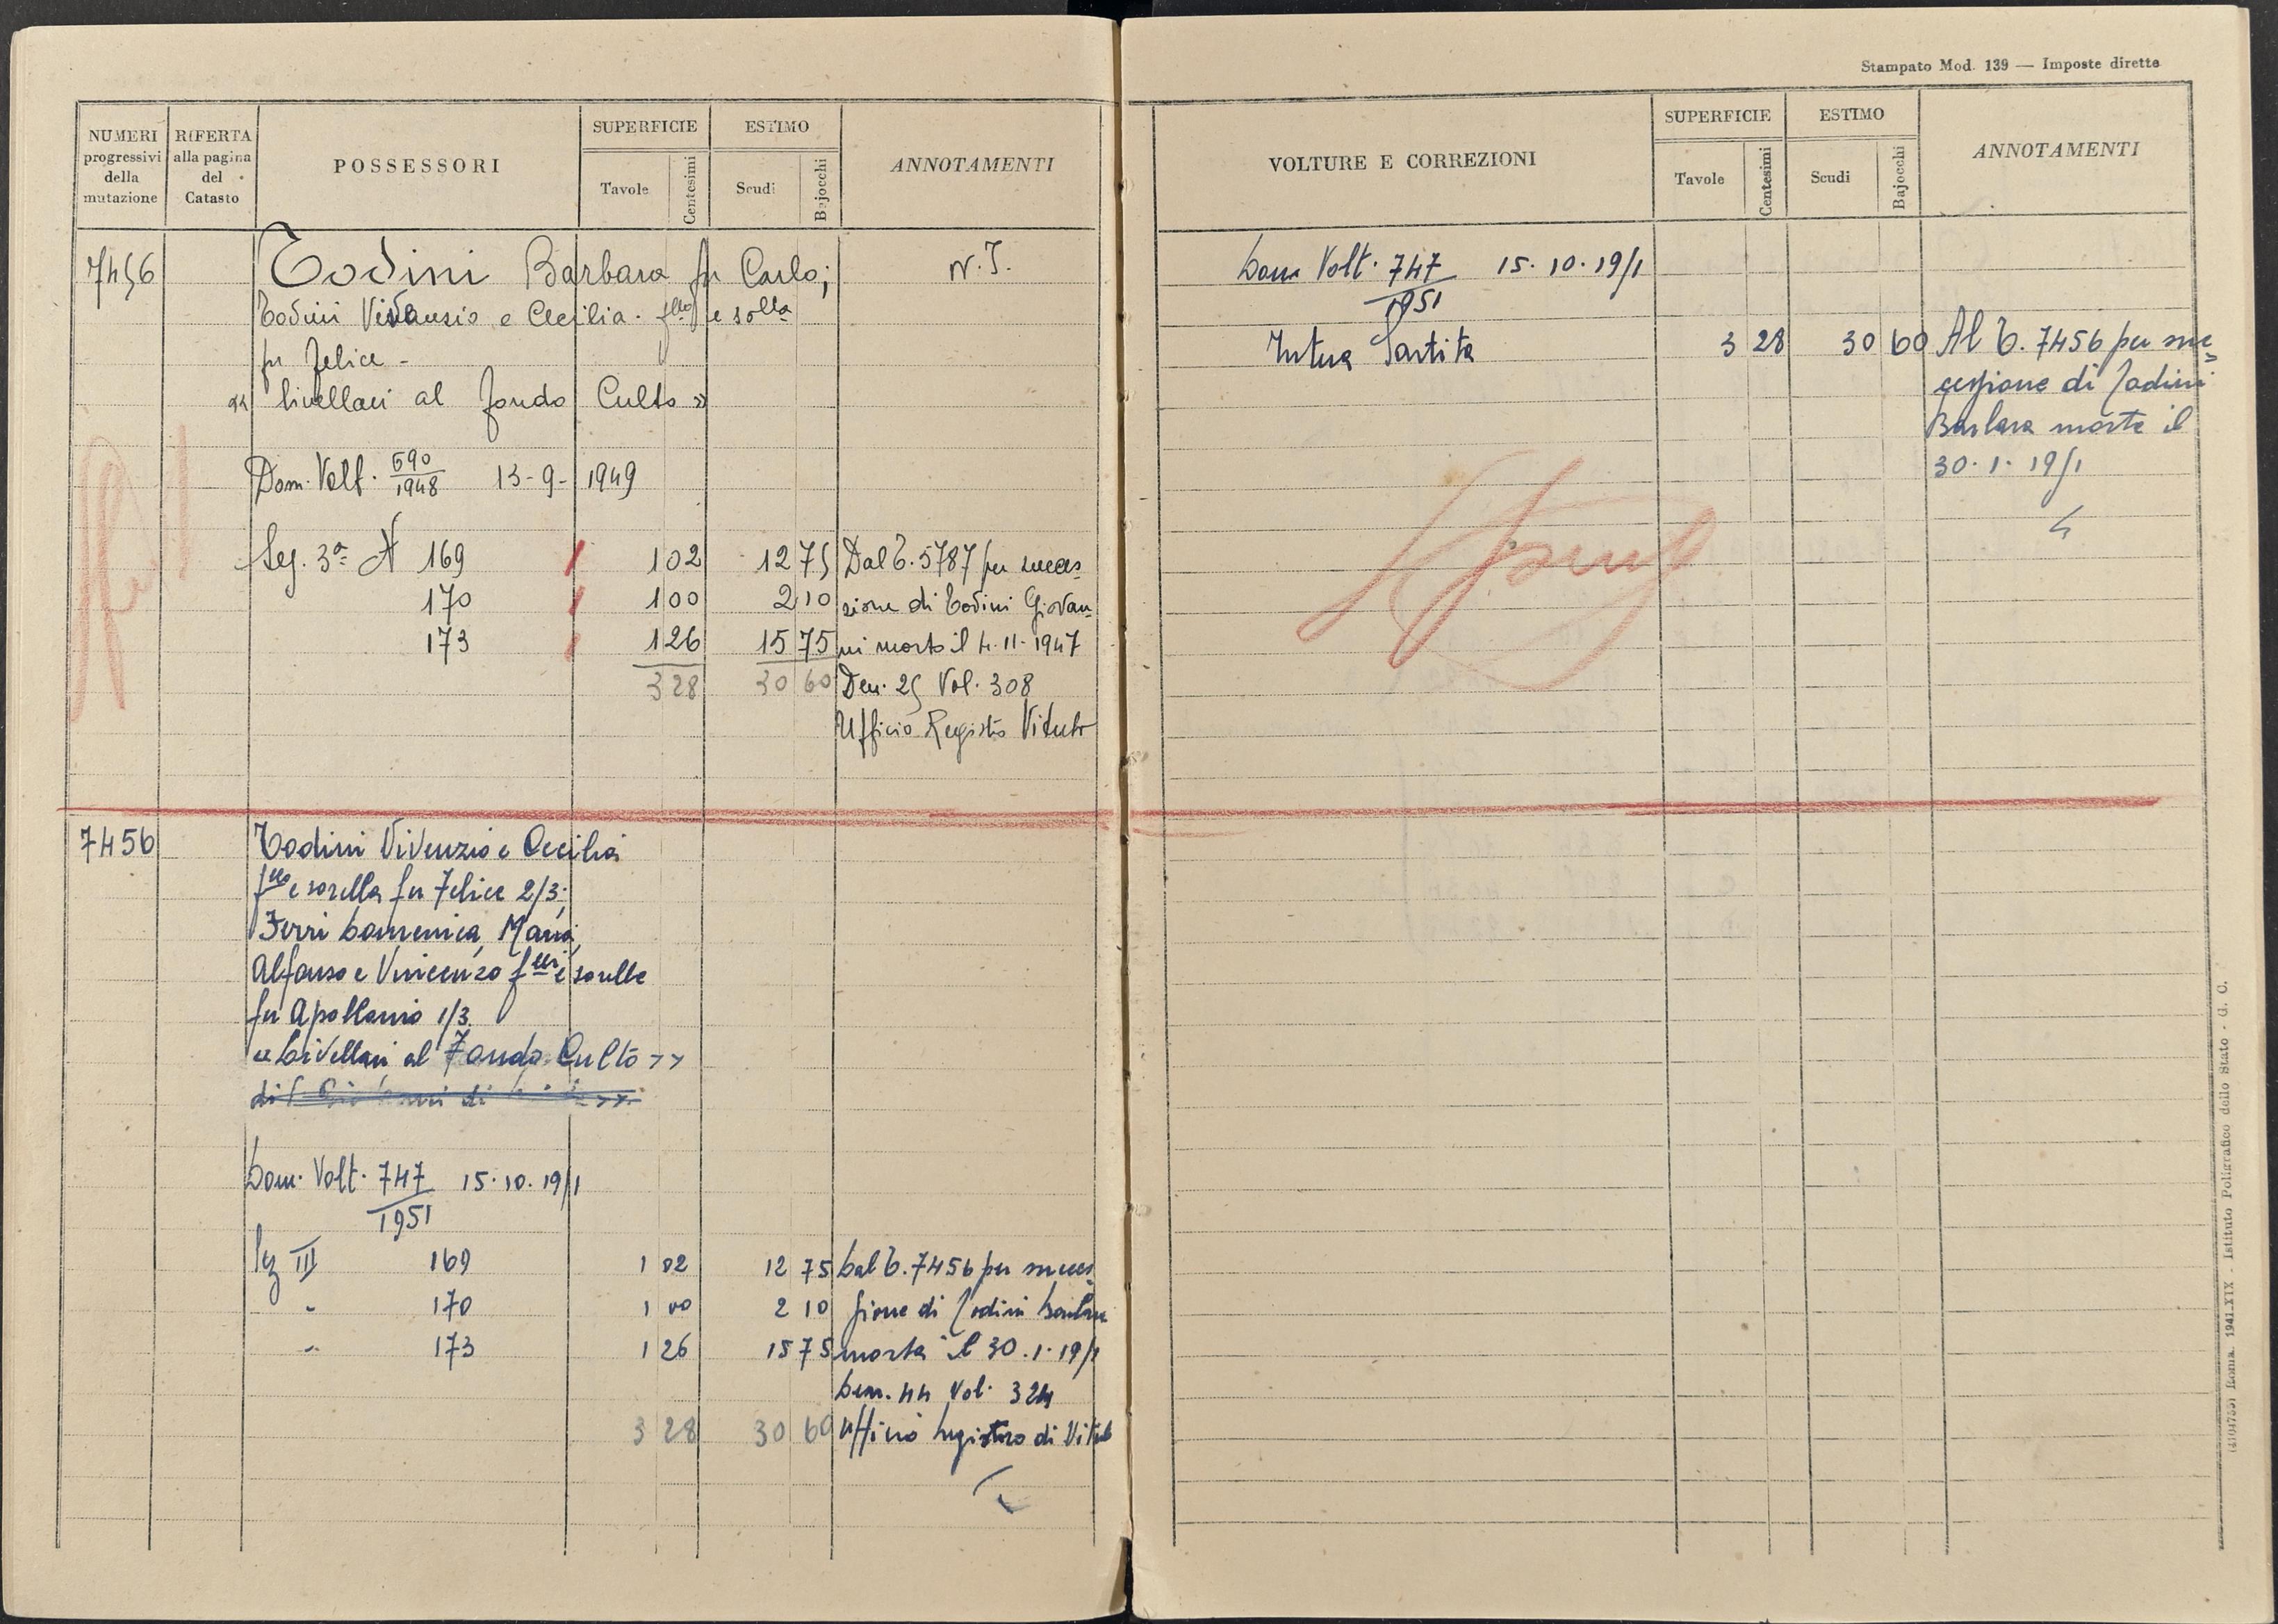 NUMERI progressivi della mutazione
RIFERTA alla pagina del Catasto
POSSESSORI
SUPERFICIE
Tavole
Centesimi
ESTIMO
Scudi
Bajocchi
ANNOTAMENTI
7456
Todini Barbara fu Carlo;
N.I.
Todini Vivenzio e Cecilia. flli e solla
fu Felice -
«livellari al fondo Culto»
Dom. Volt. 590/1948 13-9-1949
Sez. 3ª N 169 1 02 12 75 Dal T. 5787 per succes=
170 1 00 2 10 sione di Todini Giovan=
173 1 26 15 75 ni morto il 4.11.1947
3 28 30 60 Den. 25 Vol. 308
Ufficio Registro
7456
Todini Vivenzio e Cecilia
fllo e sorella fu Felice 2/3;
Ferri Domenica, Maria,
Alfonso e Vincenzo flli e sorelle
fu Apollonio 1/3
«Livellari al Fondo Culto»
Dom. Volt. 747/1951 15.10.1951
Sez III 169 1 02 12 75 Dal T. 7456 per succes
" 170 1 00 2 10 sione di Todini Barbara
" 173 1 26 15 75 morta il 30.1.1951
Den. 44 Vol. 324
3 28 30 60 Ufficio Registro di
Stampato Mod. 139 — Imposte dirette
VOLTURE E CORREZIONI
SUPERFICIE
Tavole
Centesimi
ESTIMO
Scudi
Bajocchi
ANNOTAMENTI
Dom Volt. 747/1951 15.10.1951
Intera Partita 3 28 30 60 Al T. 7456 per suc=
cessione di Todini
Barbara morta il
30.1.1951
(4101755) Roma, 1941-XIX - Istituto Poligrafico dello Stato - G. C.